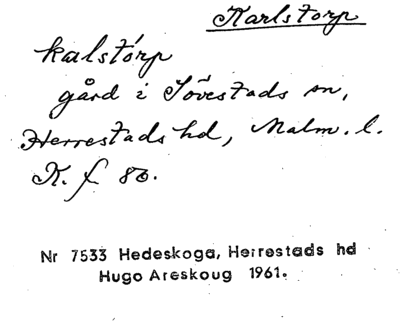 Karlstorp
kalstórp
gård i Sövestads sn,
Herrestads hd, Malm. l.
K. f 80.
Nr 7533 Hedeskoga, Herrestads hd
Hugo Areskoug 1961.